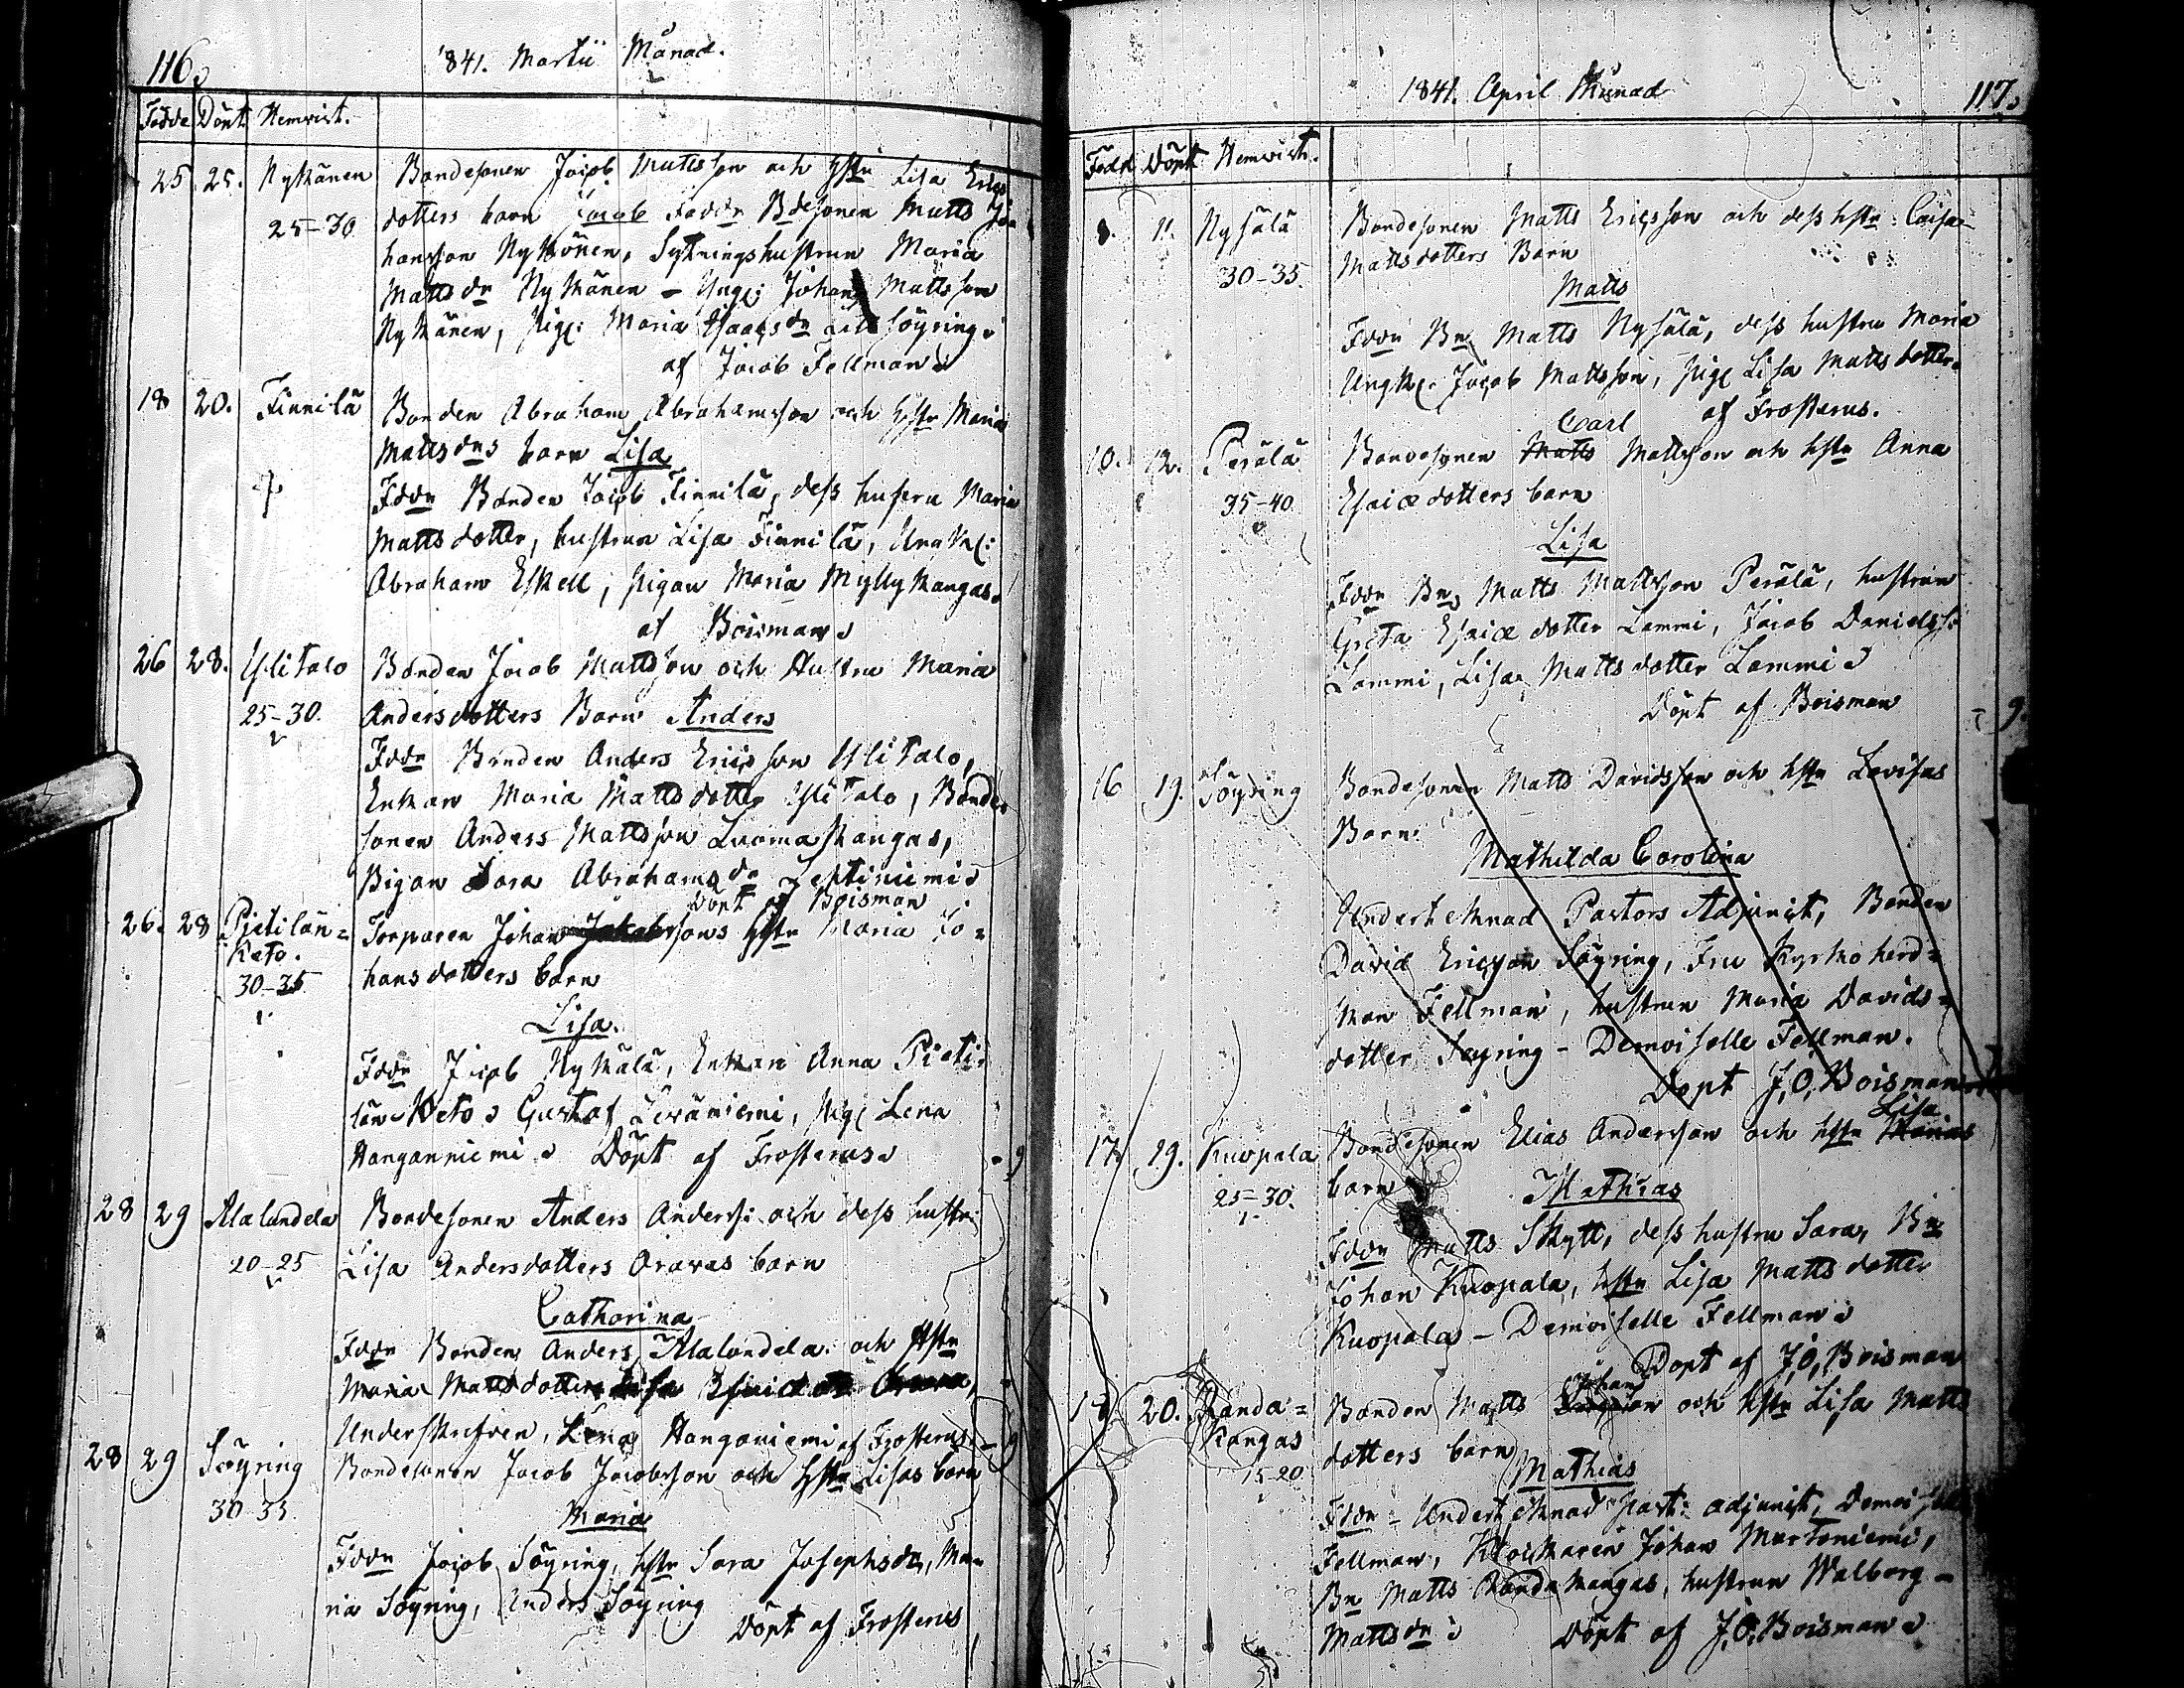 116.
1841. Martii Månad.
Födde Döpt Hemvist.
25 25. Nykänen Bondesonen Jacob Mattsson och hstu Lisa Erics
25-30 dotters barn Jacob Faddr Bdesonen Matts Jo-
hansson Nykänen, Sytningshustrun Maria
Mattsdr Nykänen - Yngl: Johan Mattsson
Nykänen, pig: Maria Isaacsdr Söyring.
af Jacob Fellman
18 20. Finnilä Bonden Abraham Abrahamsson och hstu Maria
Mattsdrs barn Lisa
Fddr Bonden Jacob Finnilä, dess hustru Maria
Mattsdotter, hustrun Lisa Finnilä, Ungk:
Abraham Eskell, pigan Maria Myllykangas.
af Boisman
26 28. Ylitalo Bonden Jacob Mattsson och Hustru Maria
25-30. Andersdotters Barn Anders
Fddr Bonden Anders Ericsson Ylitalo,
Enkan Maria Mattsdotter Ylitalo, Bonde-
sonen Anders Mattsson Luomakangas,
Pigan Sara Abrahamsdr
Döpt af Boisman
26. 28 Pietilän= Torparen Johan Jakobssons hstu Maria Jo=
Keto. hansdotters barn
30-35
Lisa.
Fddr Jacob Nykälä, Enkan Anna Pieti-
län-Keto Gustaf Leväniemi, pig: Lena
Hanganniemi Döpt af Frosterus
28 29 Alalandela Bondesonen Anders Anderss: och dess hustru
20-25 Lisa Andersdotters Oravas barn
Catharina
Fddr Bonden Anders Alalandela och Hstu
Maria Mattsdotter
Underskrifven, Lena Hanganiemi af Frosterus
28 29 Söyring Bondesonen Jacob Jacobsson och hstu Lisas barn
30 35 Maria
Fddr Jacob Söyring, hstu Sara Josephsdr, Ma-
ria Söyring, Anders Söyring
Döpt af Frosterus
1841. April Månad
117.
Född Döpt Hemvist.
8. 11. Nysälä Bondesonen Matts Ericsson och dess hstu Caisa
30-35. Mattsdotters Barn
Matts
Fddr Bn Matts Nysälä, dess hustru Maria
Ungk: Jacob Mattsson, pig: Lisa Mattsdotter.
af Frosterus.
Carl
10. 12. Perälä Bondesonen Matts Mattsson och hstu Anna
35-40. Esaiæ dotters barn
Lisa
Fddr Bn Matts Mattsson Perälä, hustrun
Greta Esaiæ dotter Lammi, Jacob Danielss:
Lammi, Lisa Mattsdotter Lammi
Döpt af Boisman
16 19. Söyring Bondesonen Matts Davidsson och hstu Lovisas
Barn
Mathilda Carolina
Underteknad Pastors Adjunct, Bonden
David Ericsson Söyring, Fru Kyrkoherd=
skan Fellman, hustrun Maria Davids=
dotter Söyring - Demoiselle Fellman.
Döpt J,O,Boisman
Lisa
17. 19. Kuopala Bondesonen Elias Andersson och hstu Marias
25-30. barn Mathias
Fddr Matts Skytt, dess hustru Sara, Bn
Johan Kuopala, hstu Lisa Mattsdotter
Kuopala - Demoiselle Fellman
Döpt af J,O,Boisman
Johans
20. Randa= Bonden Matts son och hstu Lisa Matts
Kangas dotters barn
15-20 Mathias
Fddr - Undertecknad past: adjunct, Demoiselle
Fellman, Klockaren Johan Martoniemi,
Bn Matts Randakangas, hustrun Walborg
Mattsdr Döpt af J,O,Boisman